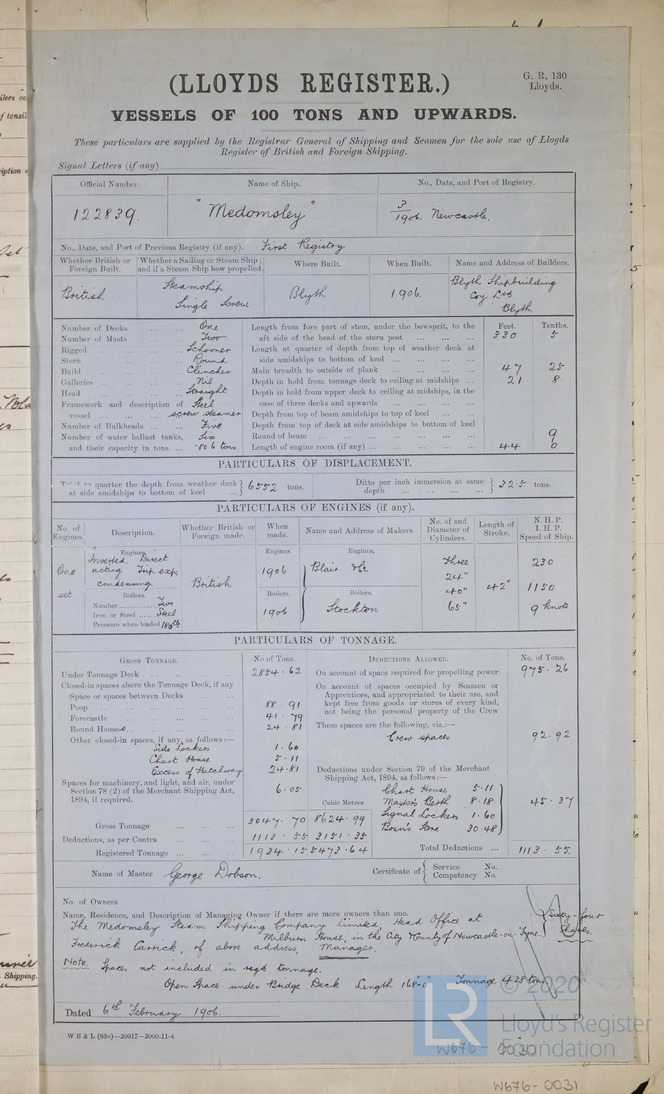 G. R. 130
Lloyds.
(LLOYDS REGISTER.)
VESSELS OF 100 TONS AND UPWARDS.
These particulars are supplied by the Registrar General of Shipping and Seamen for the sole use of Lloyds
Register of British and Foreign Shipping.
Signal Letters (if any)
Official Number. Name of Ship. No., Date, and Port of Registry.
122839. "Medomsley" 3/1906. Newcastle.
No., Date, and Port of Previous Registry (if any). First Registry
Whether British or Foreign Built. Whether a Sailing or Steam Ship; and if a Steam Ship how propelled. Where Built. When Built. Name and Address of Builders.
British Steamship Single Screw Blyth 1906. Blyth Shipbuilding Coy Ltd Blyth
Feet. Tenths.
Number of Decks One Length from fore part of stem, under the bowsprit, to the
Number of Masts Two aft side of the head of the stern post 330 5
Rigged Schooner Length at quarter of depth from top of weather deck at
Stern Round side amidships to bottom of keel
Build Clincher Main breadth to outside of plank 47 25
Galleries Nil Depth in hold from tonnage deck to ceiling at midships 21 8
Head Straight Depth in hold from upper deck to ceiling at midships, in the
Framework and description of Steel case of three decks and upwards
vessel screw steamer Depth from top of beam amidships to top of keel
Number of Bulkheads Five Depth from top of deck at side amidships to bottom of keel
Number of water ballast tanks, Six Round of beam 9
and their capacity in tons 806 tons Length of engine room (if any) 44 0
PARTICULARS OF DISPLACEMENT.
Total to quarter the depth from weather deck at side amidships to bottom of keel 6552 tons. Ditto per inch immersion at same depth 32.5 tons.
PARTICULARS OF ENGINES (if any).
No. of Engines. Description. Whether British or Foreign made. When made. Name and Address of Makers. No. of and Diameter of Cylinders. Length of Stroke. N.H.P. I.H.P. Speed of Ship.
Engines. Engines. Engines.
One set Inverted Direct acting Trip. exp. condensing British 1906 Blair & Co Three 24" 40" 65" 42" 230 1150 9 knots
Boilers. Boilers. Boilers.
Number Two 1906 Stockton
Iron or Steel Steel
Pressure when loaded 180 lb
PARTICULARS OF TONNAGE.
GROSS TONNAGE. No of Tons. DEDUCTIONS ALLOWED. No. of Tons.
Under Tonnage Deck 2854.62 On account of space required for propelling power 975.26
Closed-in spaces above the Tonnage Deck, if any On account of spaces occupied by Seamen or
Space or spaces between Decks Apprentices, and appropriated to their use, and
Poop 88.91 kept free from goods or stores of every kind,
Forecastle 41.79 not being the personal property of the Crew
Round Houses 24.81 These spaces are the following, viz.:—
Other closed-in spaces, if any, as follows:— Crew spaces 92.92
Side Lockers 1.60
Chart House 5.11
Excess of Hatchway 24.81 Deductions under Section 79 of the Merchant
Spaces for machinery, and light, and air, under 6.05 Shipping Act, 1894, as follows:—
Section 78 (2) of the Merchant Shipping Act, Chart House 5.11
1894, if required. Cubic Metres Master's Berth 8.18 45.37
Gross Tonnage 3047.70 8624.99 Signal Lockers 1.60
Deductions, as per Contra 1113.55 3151.35 Bosn's Store 30.48
Registered Tonnage 1934.15 5473.64 Total Deductions 1113.55
Name of Master George Dobson. Certificate of Service No. Competency No.
No. of Owners
Name, Residence, and Description of Managing Owner if there are more owners than one.
The Medomsley Steam Shipping Company Limited, Head Office at Sixty-four Shares.
Milburn House, in the City & County of Newcastle-on-Tyne.
Frederick Carrick, of above address, Manager.
Note. Spaces not included in regd tonnage.
Open Space under Bridge Deck Length 168.0 Tonnage 438 tons
Dated 6th February 1906.
W B & L (85o)—20917—2000-11-4
LR
© 2020
Lloyd's Register
Foundation
W676-0030
W676-0031
Shipping.